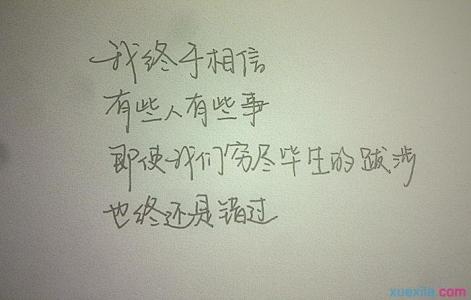 我终于相信
有些人有些事
即使我们穷尽毕生的跋涉
也终还是错过
xuexila.com